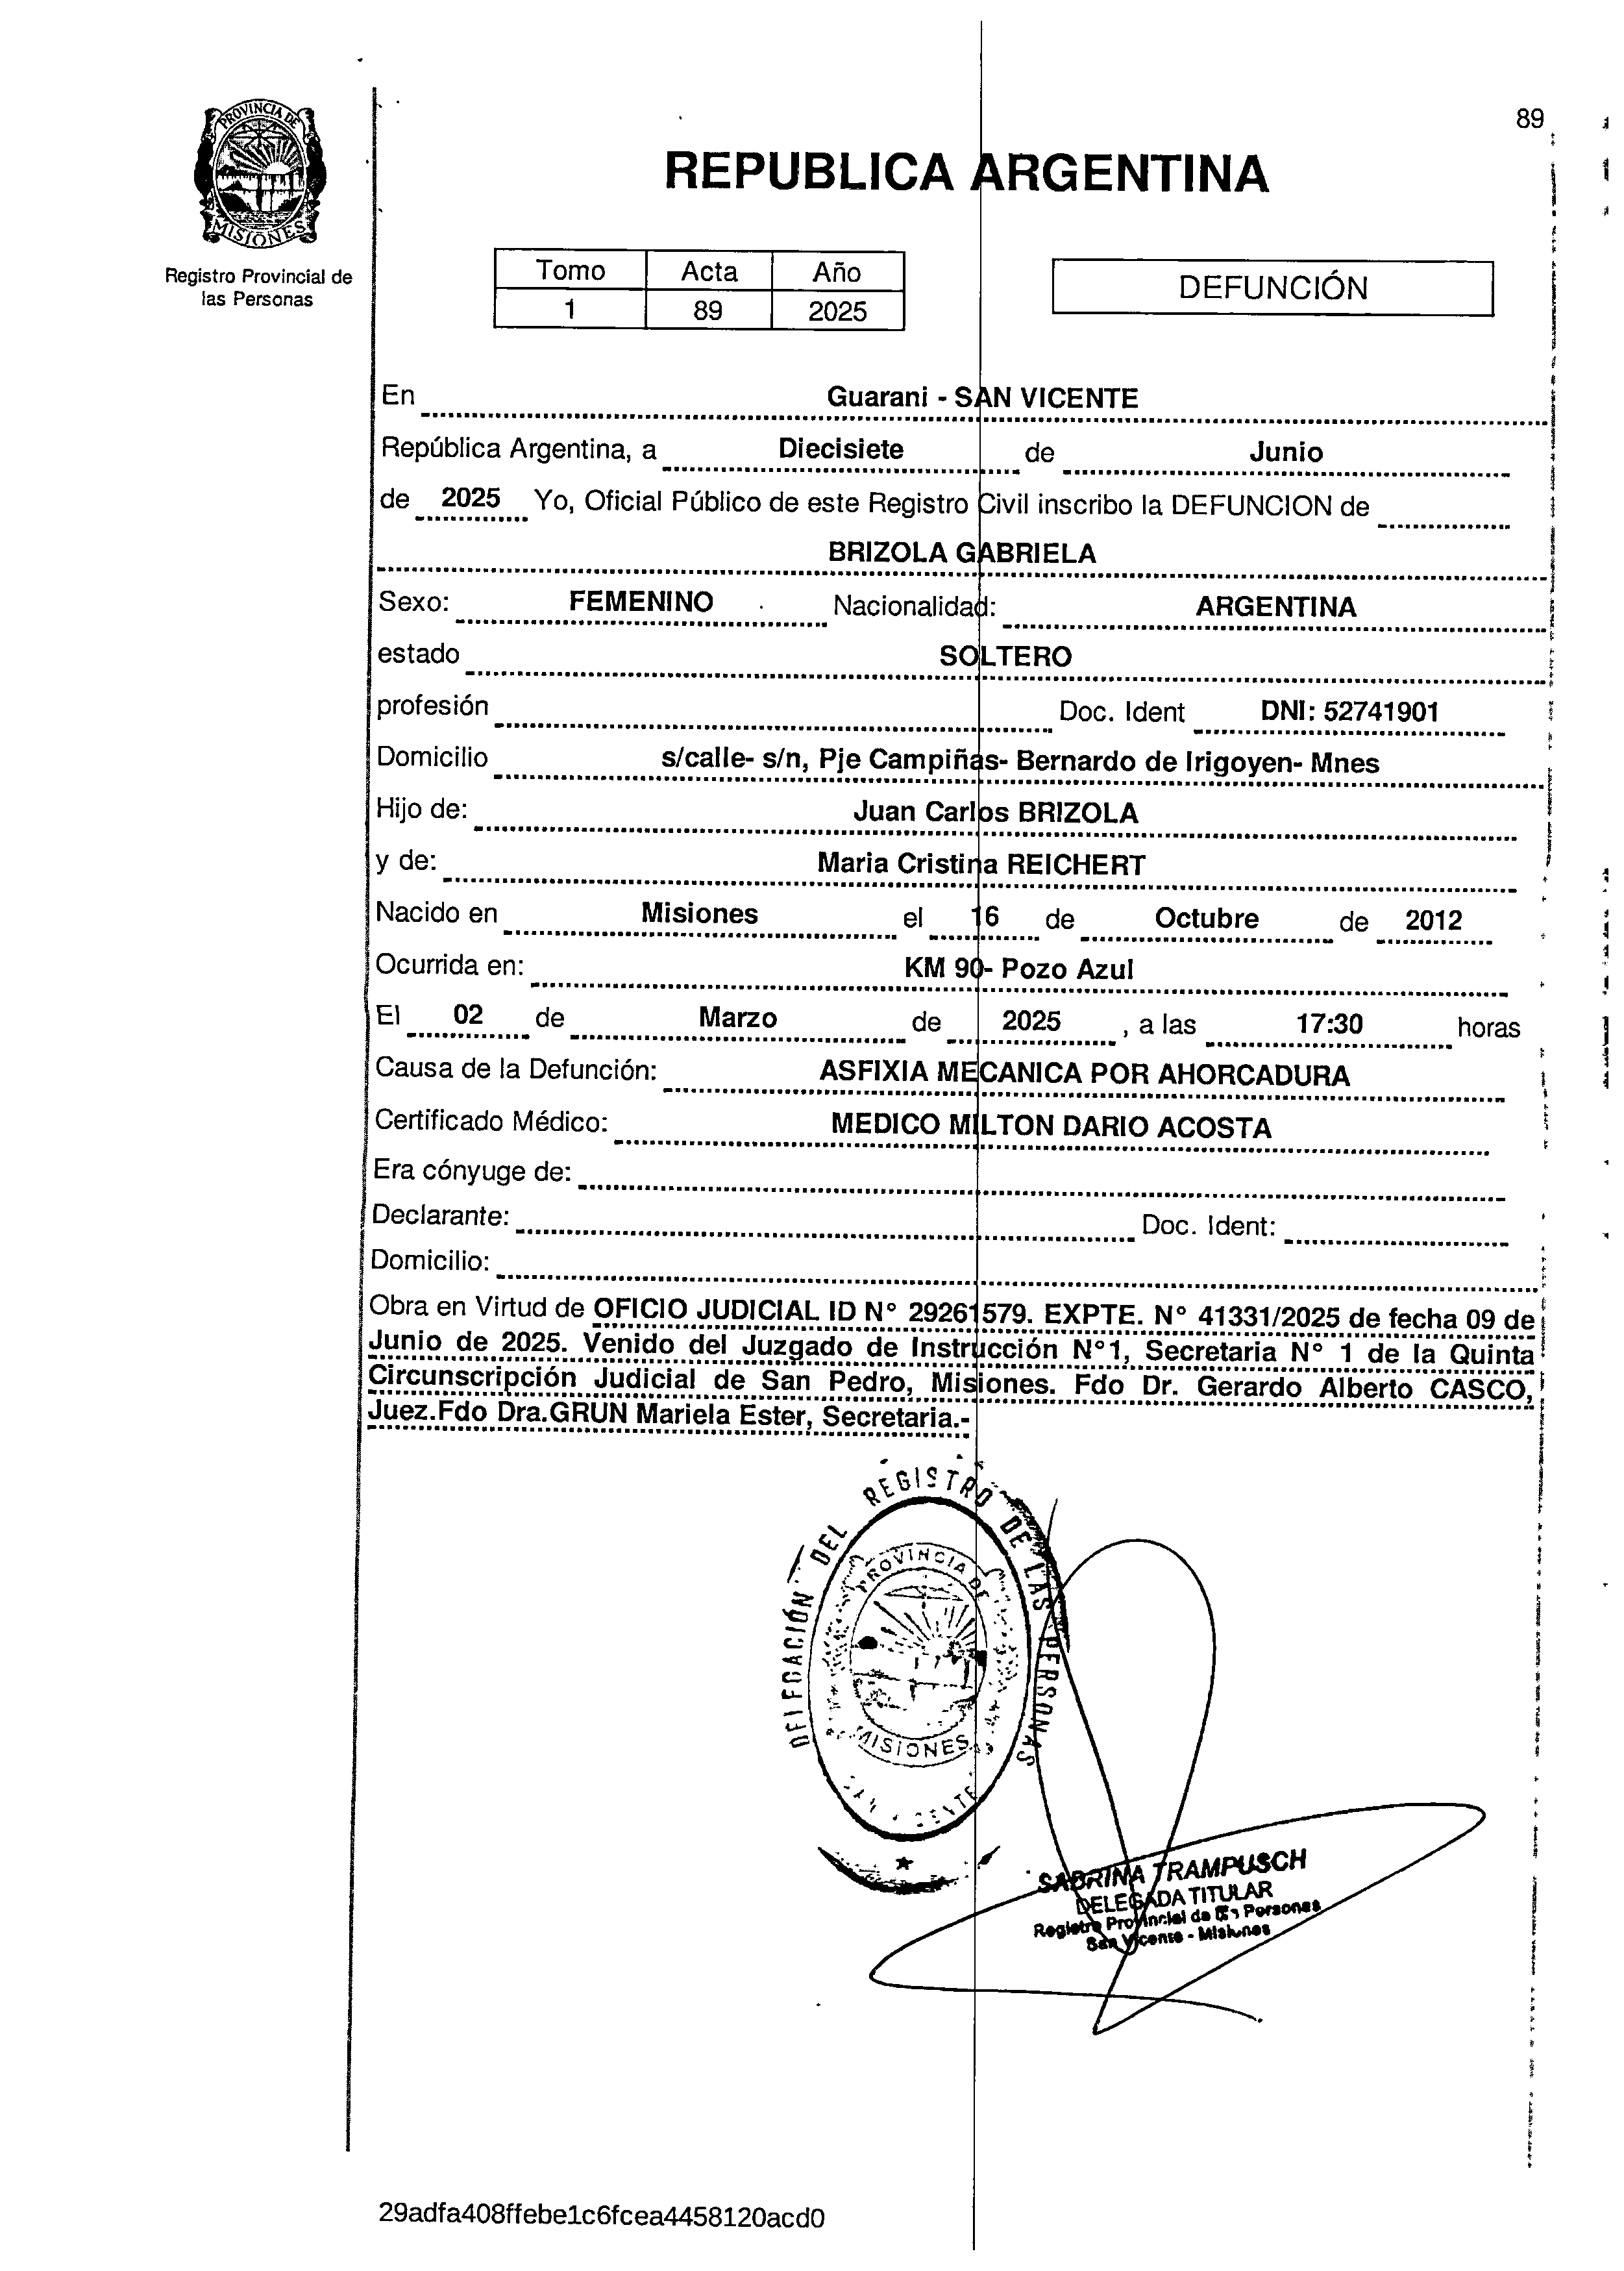 89
PROVINCIA DE
MISIONES
REPUBLICA ARGENTINA
Registro Provincial de
las Personas
Tomo Acta Año
1 89 2025
DEFUNCIÓN
En Guarani - SAN VICENTE
República Argentina, a Diecisiete de Junio
de 2025 Yo, Oficial Público de este Registro Civil inscribo la DEFUNCION de
BRIZOLA GABRIELA
Sexo: FEMENINO Nacionalidad: ARGENTINA
estado SOLTERO
profesión Doc. Ident DNI: 52741901
Domicilio s/calle- s/n, Pje Campiñas- Bernardo de Irigoyen- Mnes
Hijo de: Juan Carlos BRIZOLA
y de: Maria Cristina REICHERT
Nacido en Misiones el 16 de Octubre de 2012
Ocurrida en: KM 90- Pozo Azul
El 02 de Marzo de 2025 , a las 17:30 horas
Causa de la Defunción: ASFIXIA MECANICA POR AHORCADURA
Certificado Médico: MEDICO MILTON DARIO ACOSTA
Era cónyuge de:
Declarante: Doc. Ident:
Domicilio:
Obra en Virtud de OFICIO JUDICIAL ID N° 29261579. EXPTE. N° 41331/2025 de fecha 09 de
Junio de 2025. Venido del Juzgado de Instrucción N°1, Secretaria N° 1 de la Quinta
Circunscripción Judicial de San Pedro, Misiones. Fdo Dr. Gerardo Alberto CASCO,
Juez.Fdo Dra.GRUN Mariela Ester, Secretaria.-
DELEGACIÓN DEL REGISTRO DE LAS PERSONAS
PROVINCIA DE
MISIONES
SABRINA TRAMPUSCH
DELEGADA TITULAR
Registro Provincial de Personas
San Vicente - Misiones
29adfa408ffebe1c6fcea4458120acd0